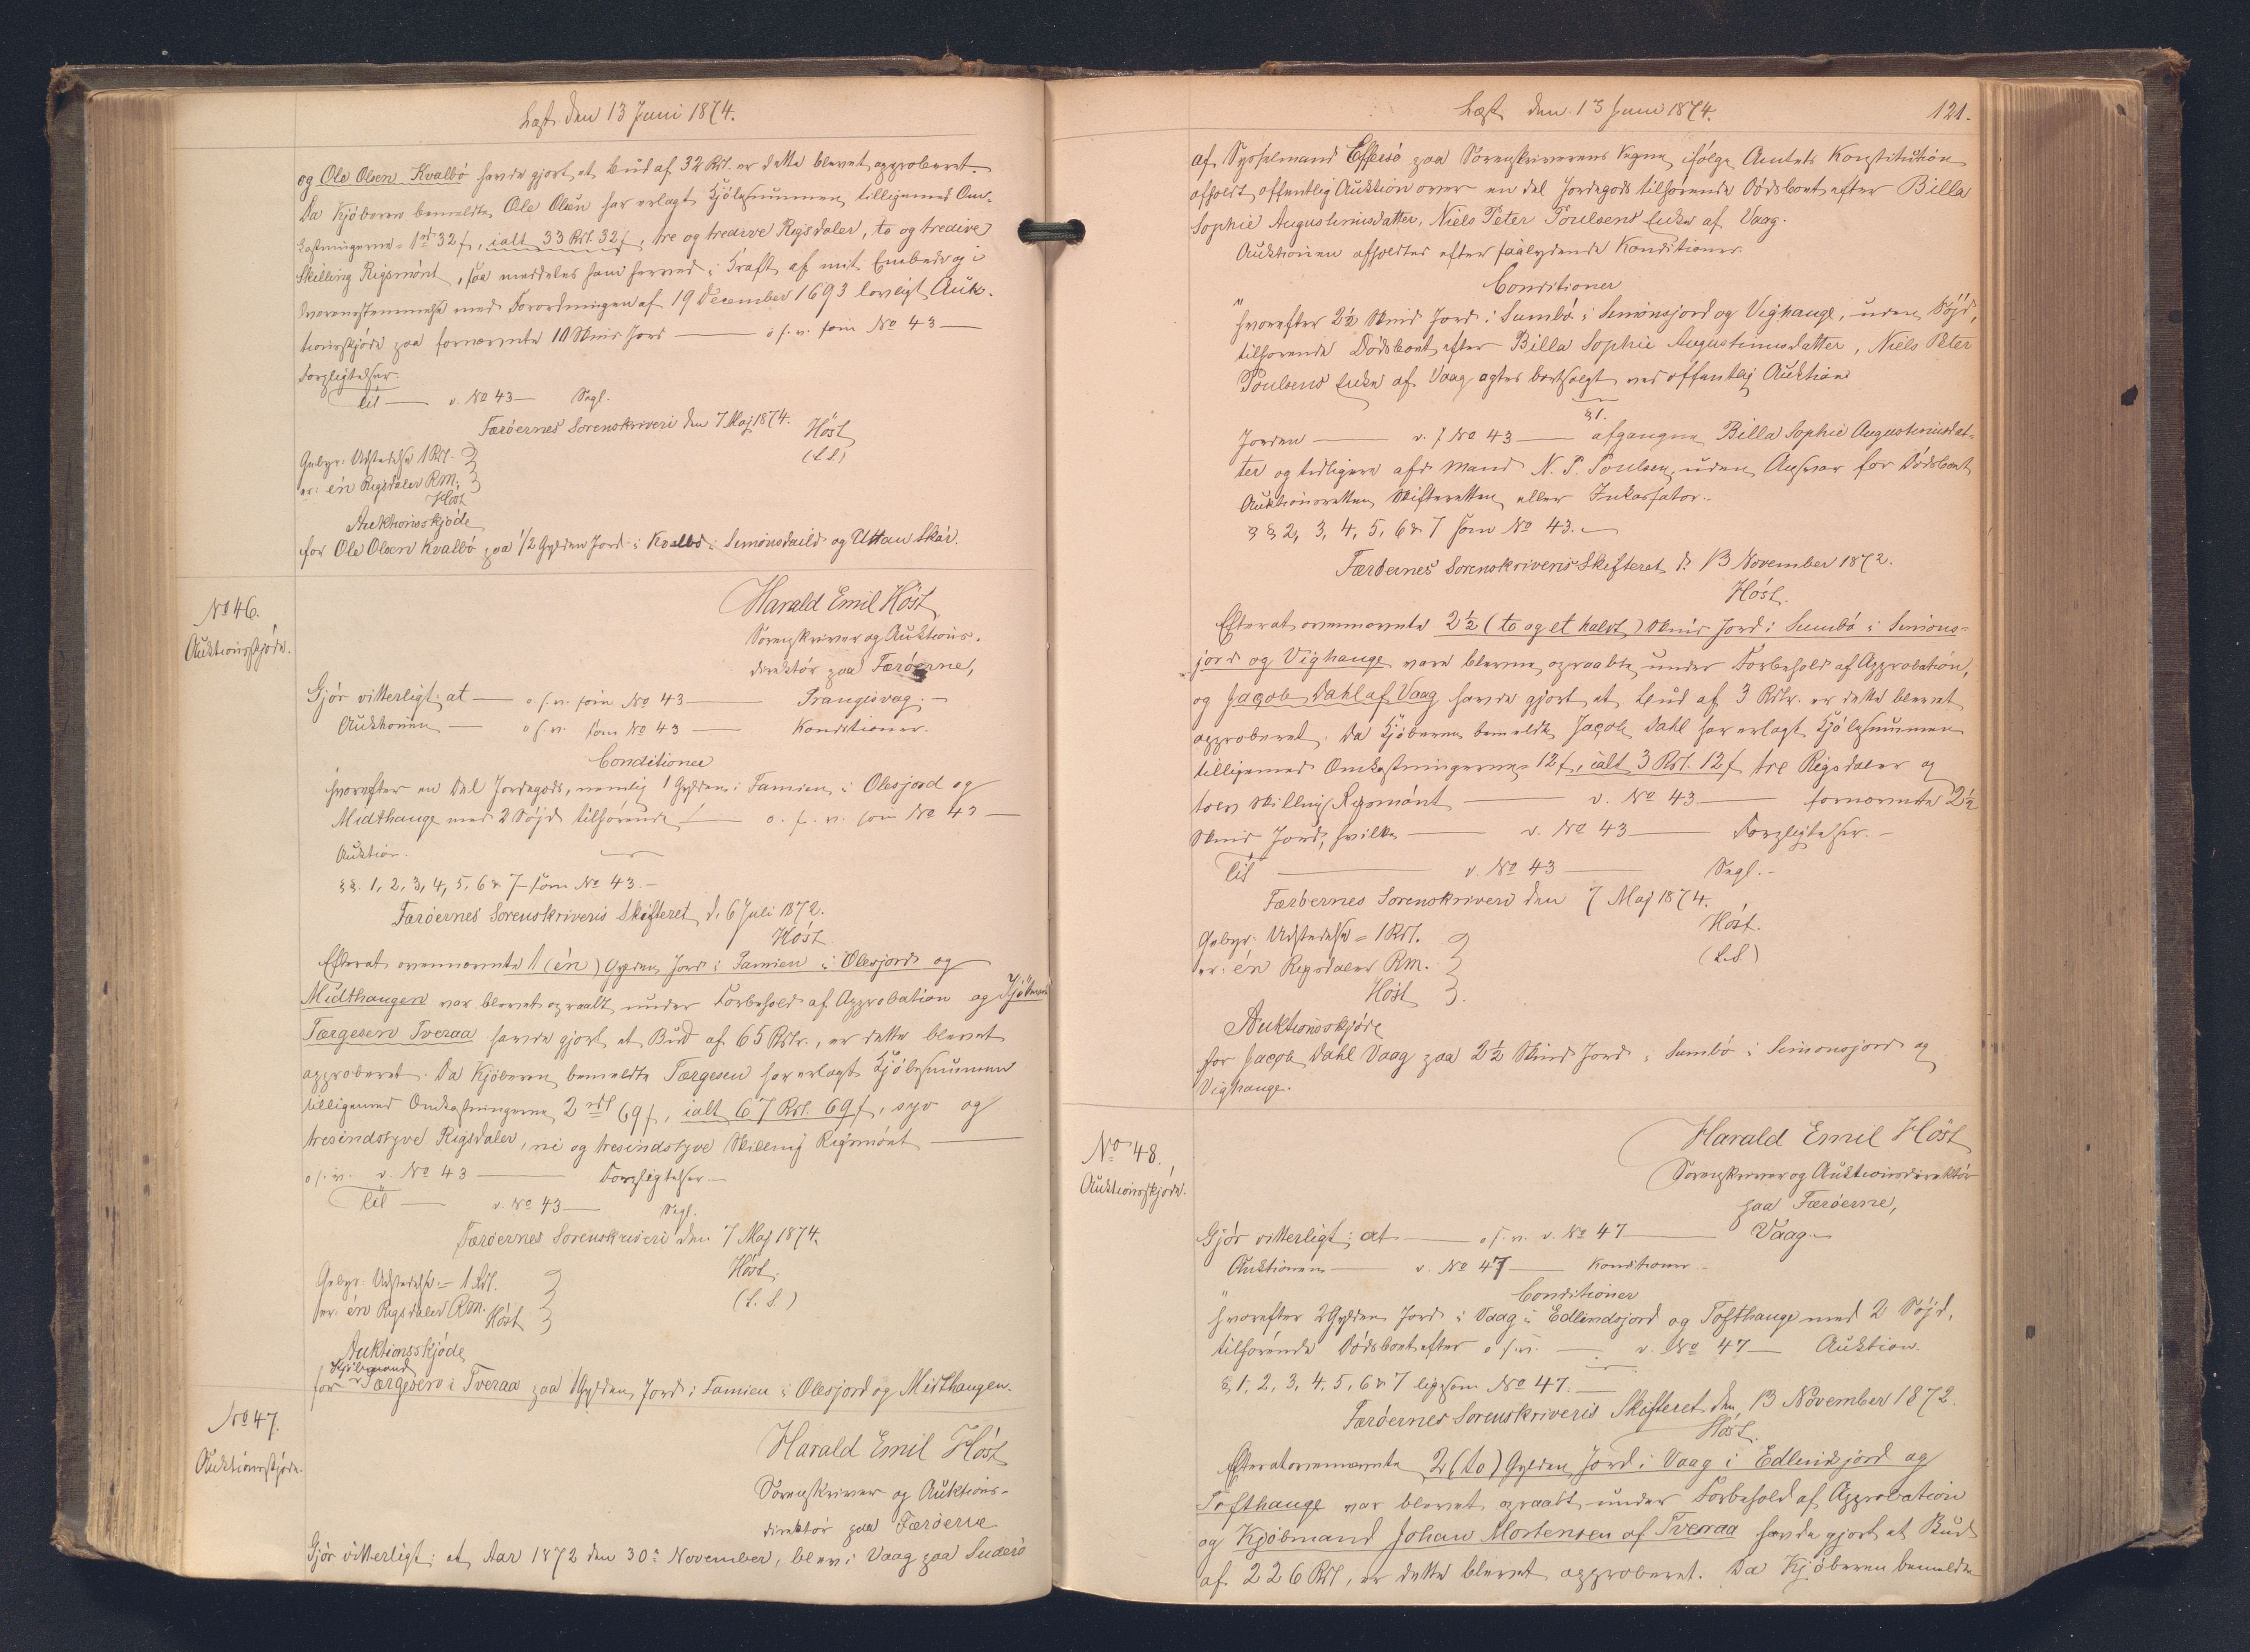 Læst den 13 Juni 1874.
og Ole Olsen Kvalbö havde gjort et Bud af 32 Rdl. er dette blevet approberet.
Da Kjöberen bemeldte Ole Olsen har erlagt Kjöbesummen tilligemed Om-
kostningerne = 1 rd 32 ſ, ialt 33 Rdl. 32 ſ, tre og tredive Rigsdaler, to og tredive
Skilling Rigsmönt, saa meddeles ham herved i Kraft af mit Embede og i
Overensstemmelse med Forordningen af 19 December 1693 lovligt Auk-
tionsskjöde paa fornævnte 10 Skind Jord — o. s. v. som No 43 —
Forpligtelser.
Til — v. No 43 — Segl.
Færöernes Sorenskriveri den 7 Maj 1874.
Höst
(L.S.)
Gebyr: Udstedelse 1 Rdl.
er: én Rigsdaler Rm.
Höst
Auktionsskjöde
for Ole Olsen Kvalbö paa 1/2 Gylden Jord i Kvalbö i Simonsdeild og Uttan Skår.
No 46.
Auktionsskjöde.
Harald Emil Höst
Sorenskriver og Auktions-
direktör paa Færöerne,
Gjör vitterligt: at — o. s. v. som No 43 — Trangisvag. —
Auktionen — o. s. v. som No 43 — Konditioner.
Conditioner
hvorefter en Del Jordegods, nemlig 1 Gylden i Famien i Olesjord og
Midthauge med 2 Söjd tilhörende — o. s. v. som No 43 —
Auktion.
§§. 1, 2, 3, 4, 5, 6 & 7 som No 43. —
Færöernes Sorenskriveris Skifteret d. 6 Juli 1872.
Höst
Efterat ovennævnte 1 (én) Gylden Jord i Famien i Olesjord og
Midthaugen var blevet opraabt under Forbehold af Approbation og Kjöbmand
Tærgesen Tveraa havde gjort et Bud af 65 Rdlr., er dette blevet
approberet. Da Kjöberen bemeldte Tærgesen har erlagt Kjöbesummen
tilligemed Omkostningerne 2 rdl 69 ſ, ialt 67 Rdl. 69 ſ, syv og
tresindstyve Rigsdaler, ni og tresindstyve Skilling Rigsmönt —
o. s. v. v. No 43 — Forpligtelser. —
Til — v. No 43 — Segl.
Færöernes Sorenskriveri den 7 Maj 1874.
Höst.
(L.S.)
Gebyr: Udstedelse = 1 Rdl.
er: én Rigsdaler Rm.
Höst
Auktionsskjöde
for Kjöbmand Tærgesen i Tveraa paa 1 Gylden Jord i Famien i Olesjord og Midthaugen.
No 47.
Auktionsskjöde.
Harald Emil Höst
Sorenskriver og Auktions-
direktör paa Færöerne
Gjör vitterligt: at Aar 1872 den 30. November, blev i Vaag paa Suderö
Læst den 13 Juni 1874.
121.
af Sysselmand Effersö paa Sorenskriverens Vegne ifölge Amtets Konstitution
afholdt offentlig Auktion over en del Jordegods tilhörende Dödsboet efter Billa
Sophie Augustinusdatter, Niels Peter Poulsens Enke af Vaag.
Auktionen afholdtes efter saalydende Konditioner.
Conditioner
hvorefter 2½ Skind Jord i Sumbö i Simonsjord og Vighauge, uden Söjd,
tilhörende Dödsboet efter Billa Sophie Augustinusdatter, Niels Peter
Poulsens Enke af Vaag agtes bortsolgt ved offentlig Auktion
§1.
Jorden — v. § No 43 — afgangne Billa Sophie Augustinusdat-
ter og tidligere afd. Mand N. P. Poulsen, uden Ansvar for Dödsboet
Auktionsretten, Skifteretten eller Inkassator.
§§ 2, 3, 4, 5, 6 & 7 som No 43. —
Færöernes Sorenskriveris Skifteret d. 13 November 1872.
Höst.
Efterat ovennævnte 2½ (to og et halvt) Skind Jord i Sumbö i Simons-
jord og Vighauge vare blevne opraabte under Forbehold af Approbation,
og Jacob Dahl af Vaag havde gjort et Bud af 3 Rdlr. er dette blevet
approberet. Da Kjöberen bemeldte Jacob Dahl har erlagt Kjöbesummen
tilligemed Omkostningerne 12 ſ, ialt 3 Rdl. 12 ſ tre Rigsdaler og
tolv Skilling Rigsmönt — v. No 43. — fornævnte 2½
Skind Jord, hvilke — v. No 43 — Forpligtelser. —
Til — v. No 43 — Segl. —
Færöernes Sorenskriveri den 7 Maj 1874.
Höst.
(L.S)
Gebyr: Udstedelse = 1 Rdl.
er: én Rigsdaler Rm.
Höst
Auktionsskjöde
for Jacob Dahl Vaag paa 2½ Skind Jord i Sumbö i Simonsjord og
Vighauge.
No 48.
Auktionsskjöde.
Harald Emil Höst
Sorenskriver og Auktionsdirektör
paa Færöerne,
Gjör vitterligt: at — o. s. v. v. No 47 — Vaag. —
Auktionen — v. No 47 — Konditioner —
Conditioner
hvorefter 2 Gylden Jord i Vaag i Edlendsjord og Tofthauge med 2 Söjd,
tilhörende Dödsboet efter o. s. v. — v. No 47 — Auktion.
§ 1, 2, 3, 4, 5, 6 & 7 ligesom No 47. —
Færöernes Sorenskriveris Skifteret den 13 November 1872.
Höst.
Efterat ovennævnte 2 (to) Gylden Jord i Vaag i Edlendsjord og
Tofthauge var blevet opraabt under Forbehold af Approbation
og Kjöbmand Johan Mortensen af Tveraa havde gjort et Bud
af 226 Rdl, er dette blevet approberet. Da Kjöberen bemeldte